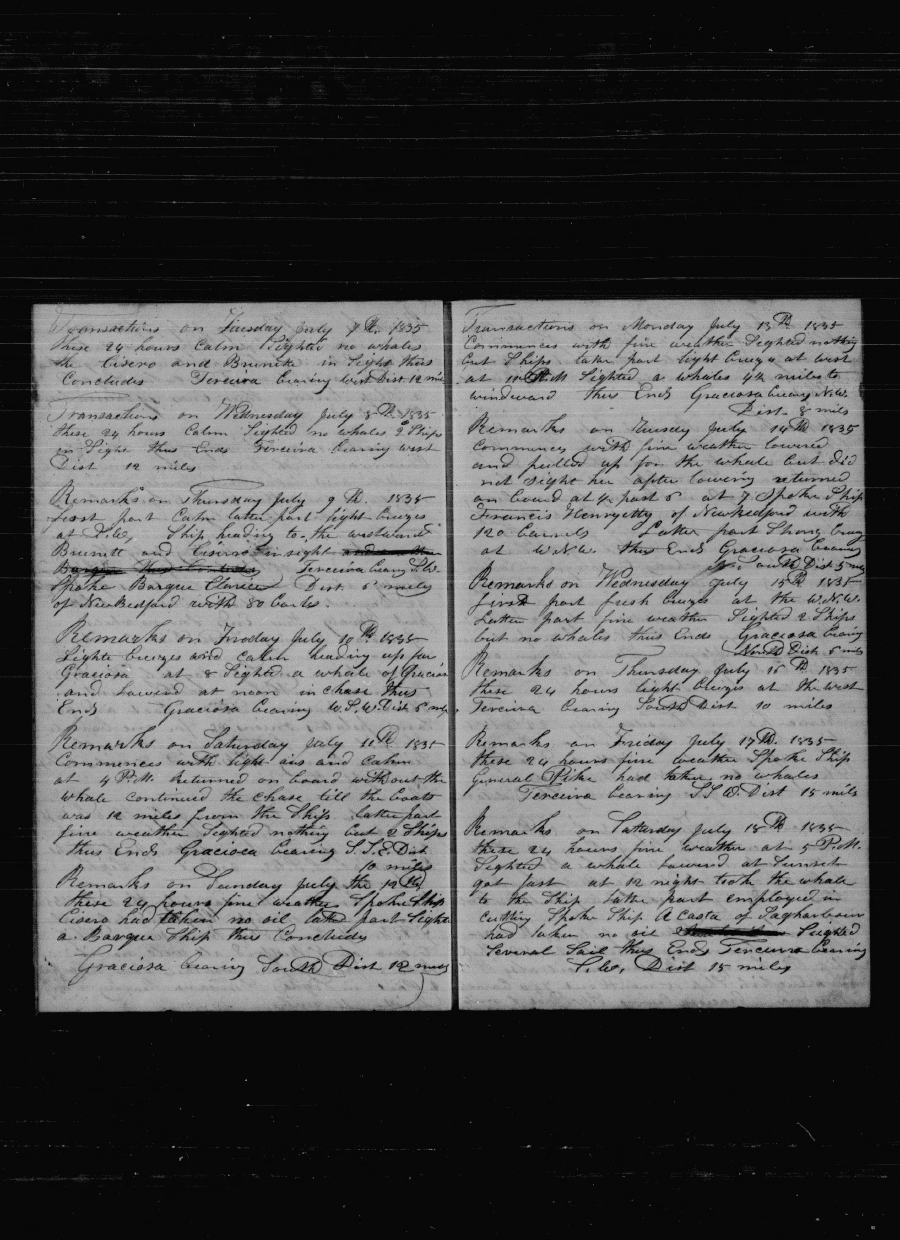 Transactions on Tuesday July 7th. 1835
these 24 hours Calm Sighted no whales
the Cisero and Brunette in Sight thus
Concludes Terceira bearing West Dist 12 miles
Transactions on Wednesday July 8th. 1835
these 24 hours Calm Sighted no whales 2 Ships
in Sight thus Ends Terceira bearing west
Dist 12 miles
Remarks on Thursday July 9th. 1835
first part Calm latter part light breezes
at Ship heading to the westward
Brunett and Cisero in sight
Terceira bearing
Spoke Barque Dist. 5 miles
of New Bedford with 80 barls.
Remarks on Friday July 10th. 1835
Lighte breezes and calm heading up for
Graciosa at 8 Sighted a whale of Graciosa
and lowered at noon in chase thus
Ends Graciosa bearing W.S.W. Dist 5 miles
Remarks on Saturday July 11th 1835
Commences with light airs and Calm
at 4 P.M. Returned on board without the
whale continued the chase till the boats
was 12 miles from the Ship latter part
fine weather Sighted nothing but 2 Ships
thus Ends Graciosa bearing S.S.E. Dist
10 miles
Remarks on Sunday July the 12th
these 24 hours fine weather Spoke Ship
Cisero had taken no oil latter part Sighted
a Barque Ship thus Concludes
Graciosa bearing South Dist 12 miles
Transactions on Monday July 13th 1835
Commences with fine weather Sighted nothing
but Ships latter part light breeze at west
at 10 A.M Sighted a whales 4½ miles to
windward thus Ends Graciosa bearing N.W.
Dist. 8 miles
Remarks on Tuesday July 14th 1835
Commences with fine weather lowered
and pulled up for the whale but did
not sight her after lowering returned
on board at ½ past 6 at 7 Spoke Ship
Francis Henryetty of New Bedford with
120 barrels Latter part Strong breeze
at W.N.W. thus Ends Graciosa bearing
South Dist 5 miles
Remarks on Wednesday July 15th 1835
first part fresh breezes at the W.N.W.
Latter part fine weather Sighted 2 Ships
but no whales thus Ends Graciosa bearing
North Dist 5 miles
Remarks on Thursday July 16th 1835
these 24 hours light breezes at the west
Terceira bearing South Dist 10 miles
Remarks on Friday July 17th. 1835
these 24 hours fine weather Spoke Ship
General Pike had taken no whales
Terceira bearing S S W. Dist 15 miles
Remarks on Satturday July 18th 1835
these 24 hours fine weather at 5 P.M.
Sighted a whale lowered at Sunset
got fast at 12 night took the whale
to the Ship latter part employed in
cutting Spoke Ship Acasta of Sagharbour
had taken no oil Sighted
Several Sail thus Ends Terceira bearing
Dist 15 miles